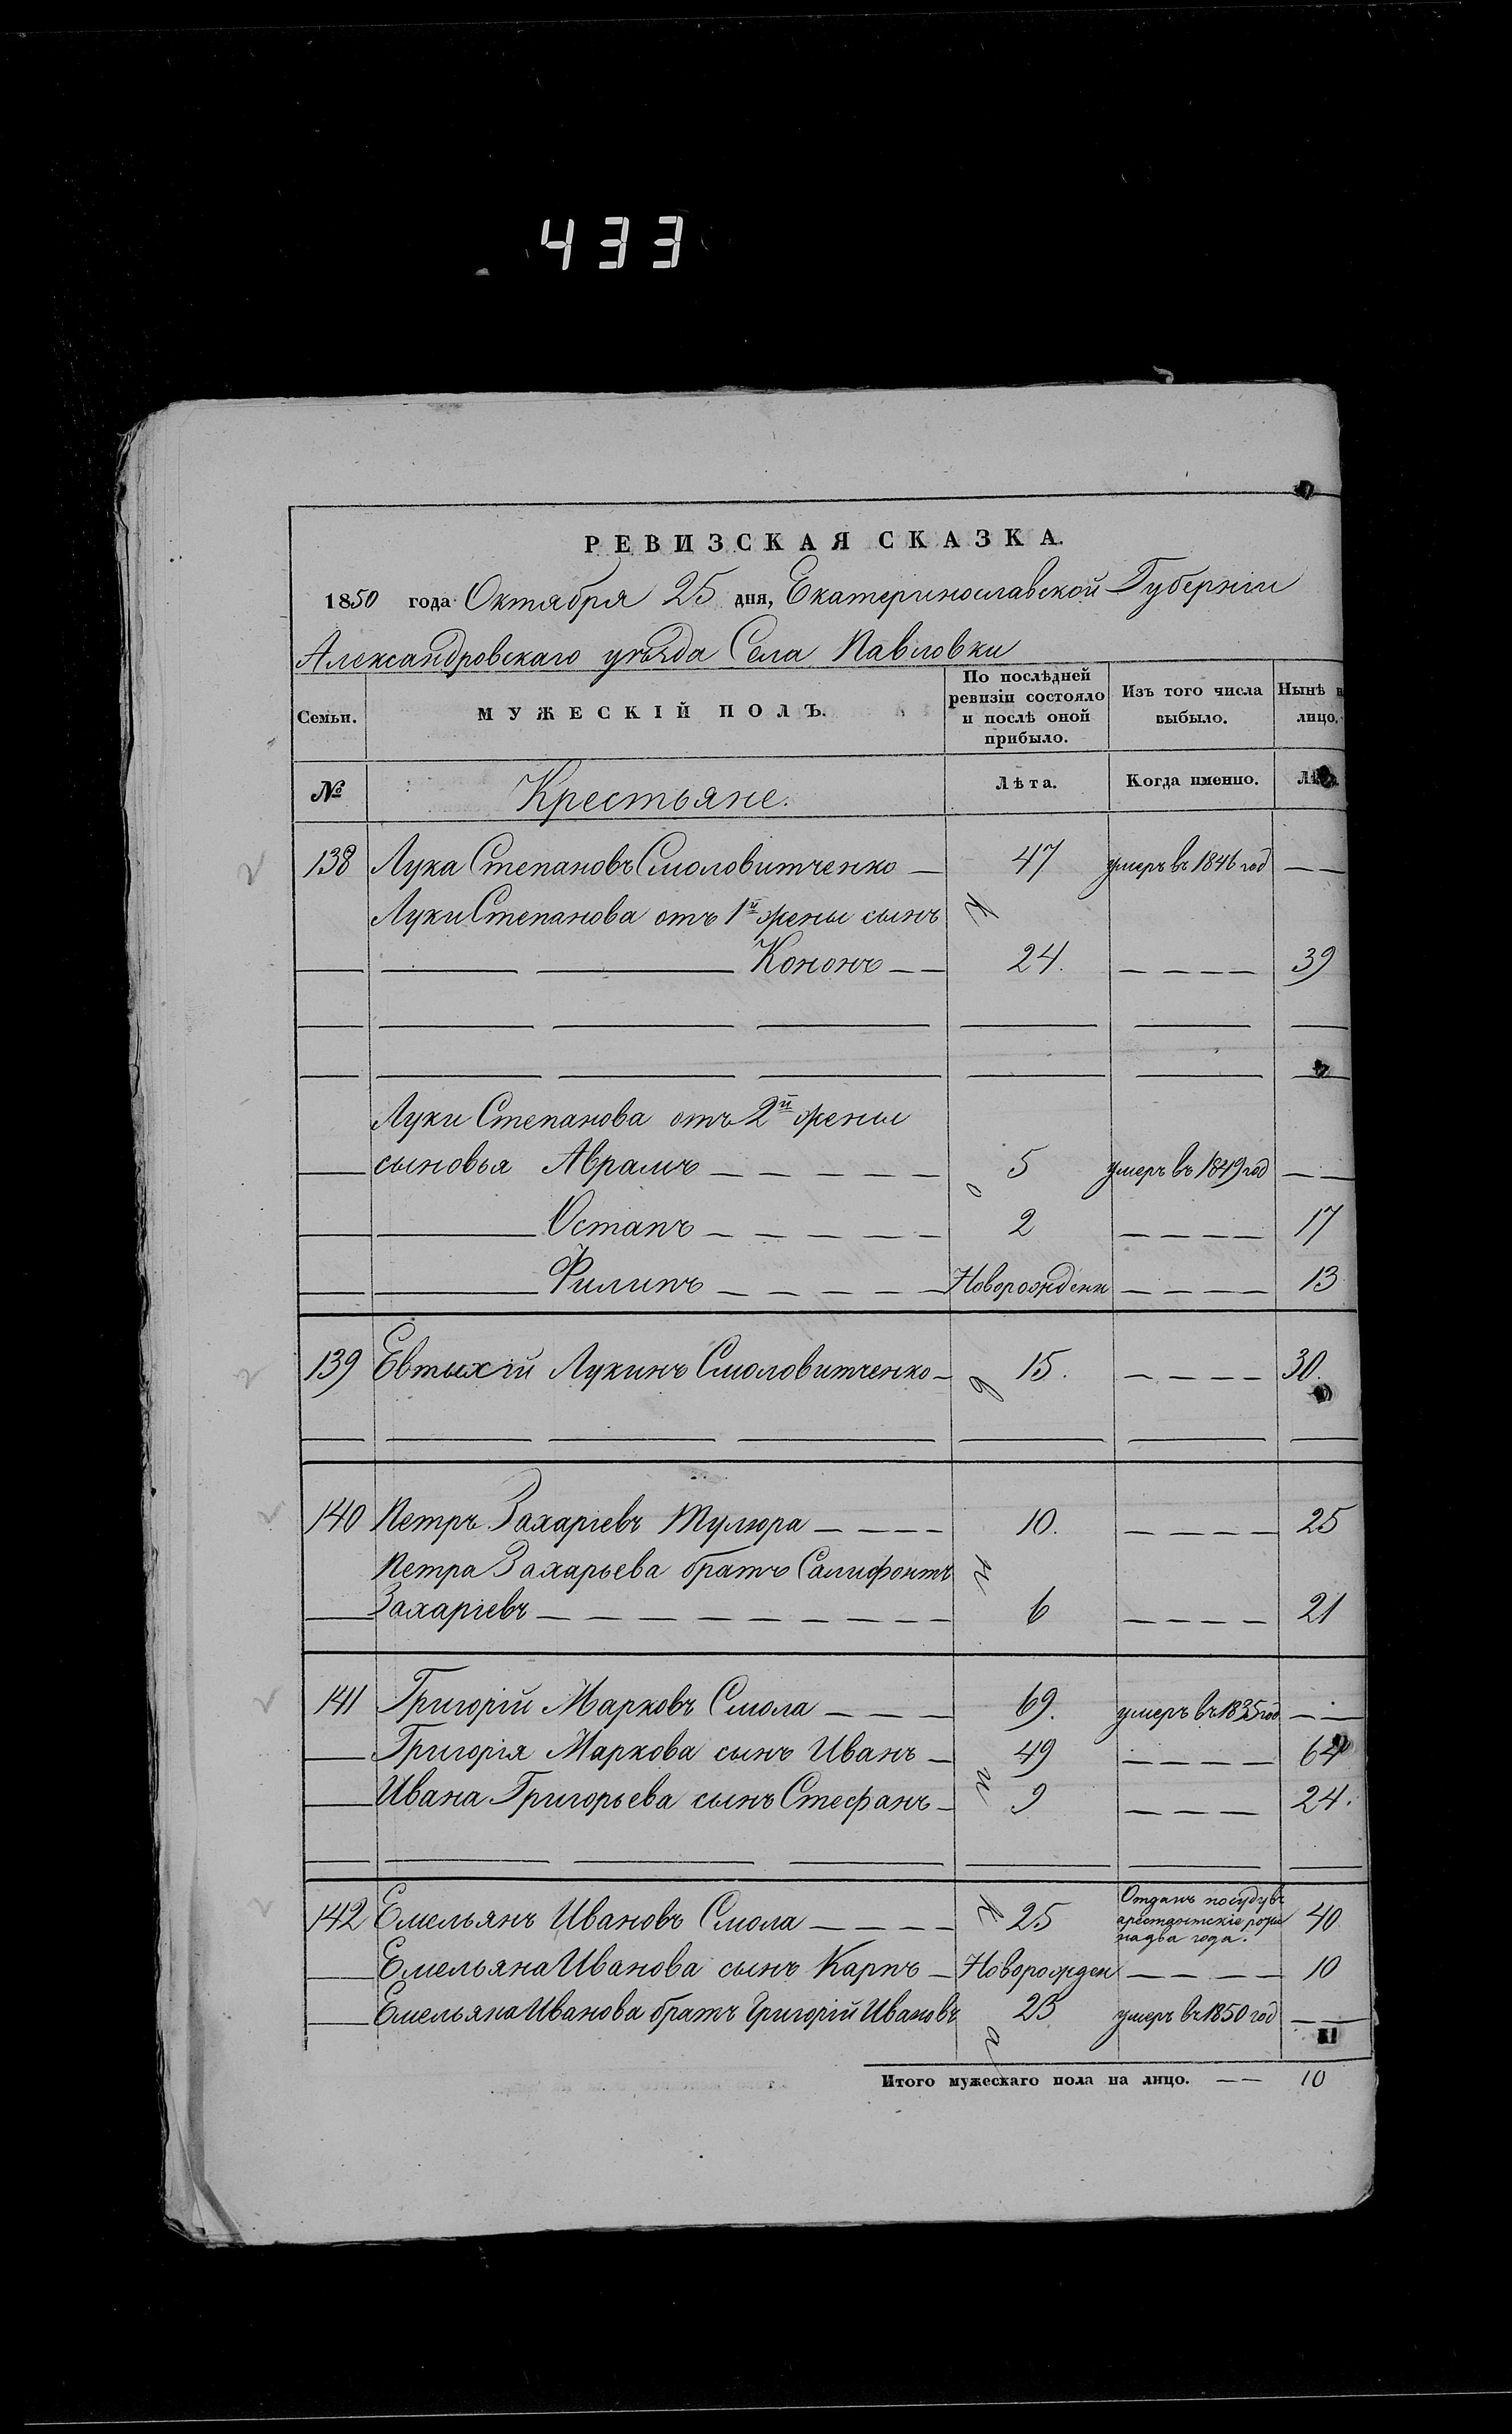 433
РЕВИЗСКАЯ СКАЗКА.
1850 года Октября 25 дня, Екатеринославской Губернiи
Александровскаго уѣзда Села Павловки
Семьи. МУЖЕСКIЙ ПОЛЪ. По послѣдней ревизiи состояло и послѣ оной прибыло. Изъ того числа выбыло. Нынѣ н лицо.
№ Крестьяне. Лѣта. Когда именно.
138 Лука Степановъ Смоловитченко — 47 умеръ въ 1846 год — —
Луки Степанова отъ 1й жены сынъ
Кононъ — — 24. — — — — 39
Луки Степанова отъ 2й жены
сыновья Аврамъ — — — — — 5 умеръ въ 1849 год — —
Остапъ — — — — — 2 — — — — 17
Филипъ — — — — — Новорожденн — — — — 13
139 Евтихiй Лукинъ Смоловитченко — 15. — — — — 30.
140 Петръ Захарiевъ Тулюра — — — — 10. — — — — 25
Петра Захарьева братъ Салифонтъ
Захарiевъ — — — — — — — — — 6 — — — — 21
141 Григорiй Марковъ Смола — — — 69. умеръ въ 1835 год — —
Григорiя Маркова сынъ Иванъ — 49 — — — — 64
Ивана Григорьева сынъ Стефанъ — 9 — — — 24.
142 Емельянъ Ивановъ Смола — — — — 25 Отданъ посуду въ арестантскiе роты на два года. 40
Емельяна Иванова сынъ Карпъ — Новорожден — — — — 10
Емельяна Иванова братъ Григорiй Ивановъ 23 умеръ въ 1850 год — —
Итого мужескаго пола на лицо. — — 10